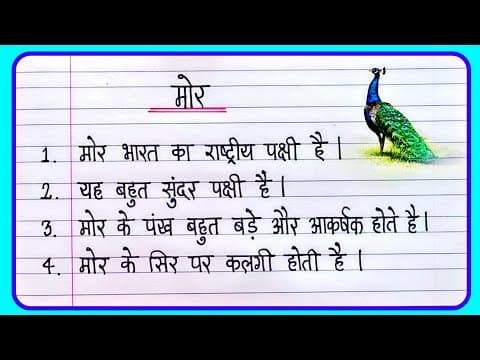 मोर
1. मोर भारत का राष्ट्रीय पक्षी है।
2. यह बहुत सुंदर पक्षी है।
3. मोर के पंख बहुत बड़े और आकर्षक होते है।
4. मोर के सिर पर कलगी होती है।